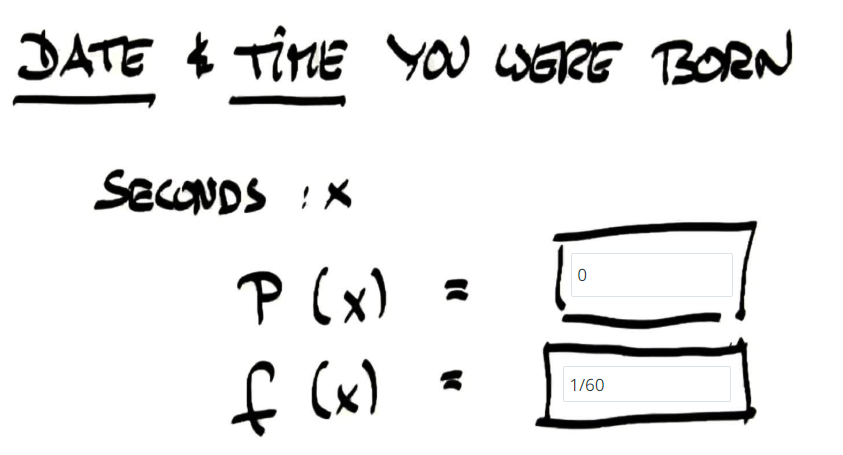 DATE & TIME YOU WERE BORN
SECONDS : x
P (x) = 0
f (x) = 1/60